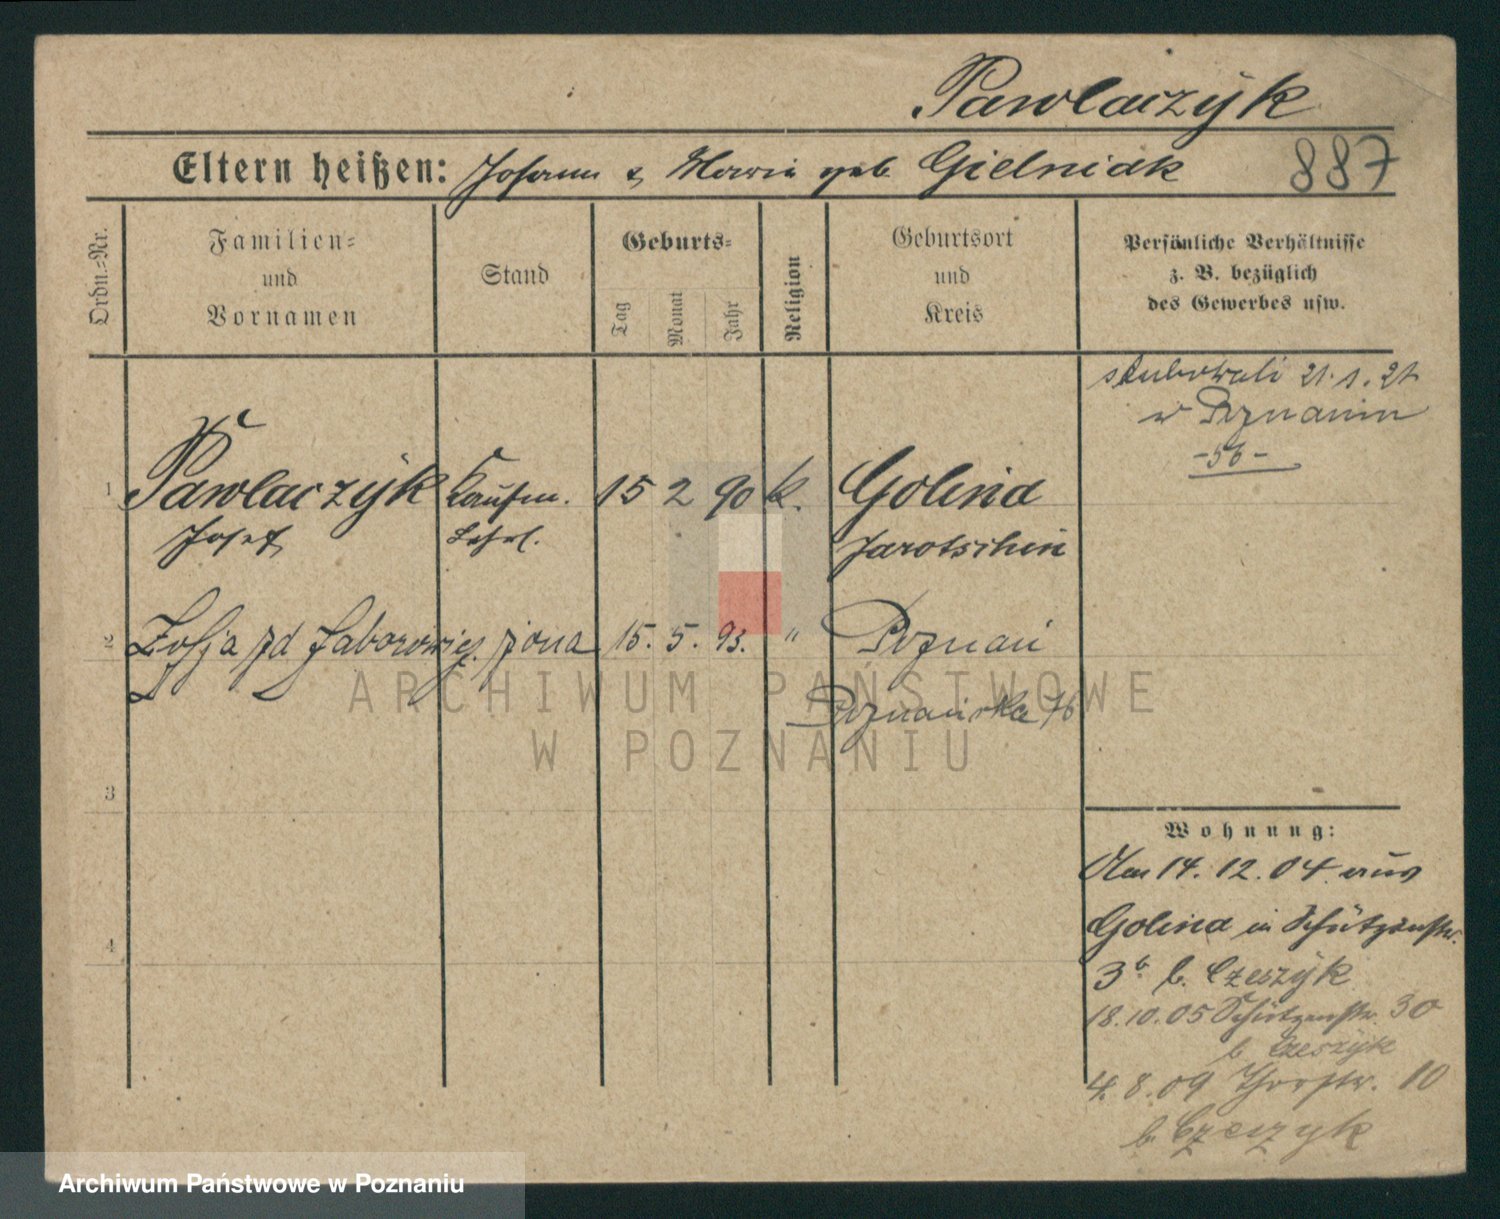 Pawlaczÿk
Eltern heißen: Johann & Maria geb. Gielniak 887
Ordn.-Nr.
Familien-
und
Vornamen
Stand
Geburts-
Tag
Monat
Jahr
Religion
Geburtsort
und
Kreis
Persönliche Verhältnisse
z. B. bezüglich
des Gewerbes usw.
ślubowali 21.1.21
w Poznaniu
-56-
1 Pawlaczÿk Kaufm. 15 2 90 k. Golina
Josef Lehrl. Jarotschin
2 Zofja zd Jaborowicz żona 15. 5. 93. " Poznań
Poznańska 76
3
4
Wohnung:
Am 14. 12. 04 aus
Golina in Schützenstr.
3b b. Czeszÿk
18.10.05 Schützenstr. 30
b. Czeszÿk
4. 8. 09 Thorstr. 10
b. Czeszyk
ARCHIWUM PAŃSTWOWE
W POZNANIU
Archiwum Państwowe w Poznaniu